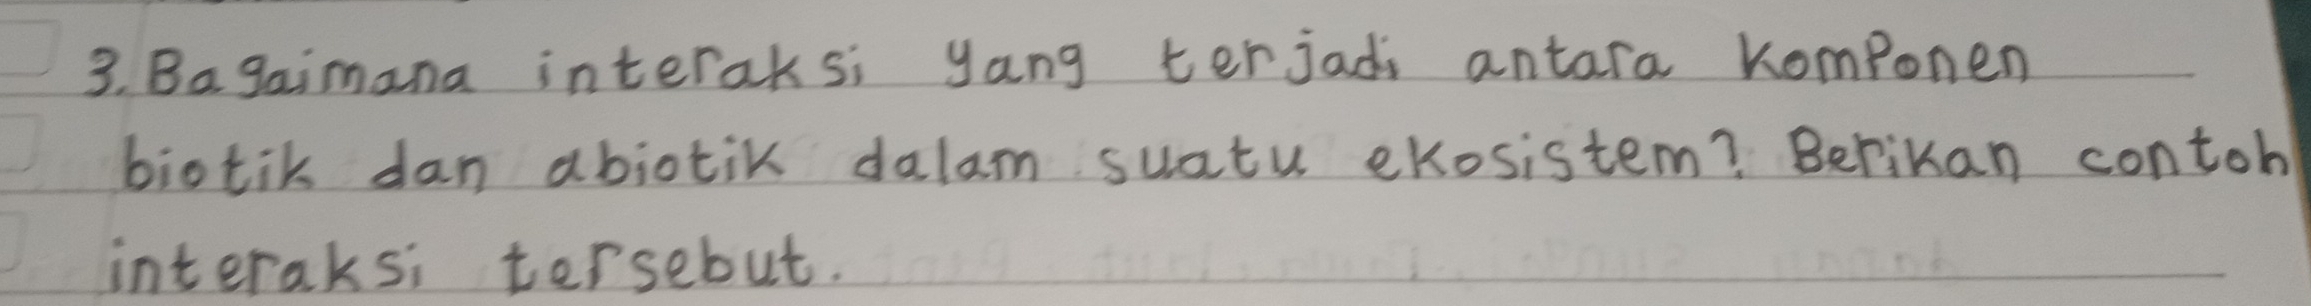 3. Bagaimana interaksi yang terjadi antara Komponen
biotik dan abiotik dalam suatu ekosistem? Berikan contoh
interaksi tersebut.